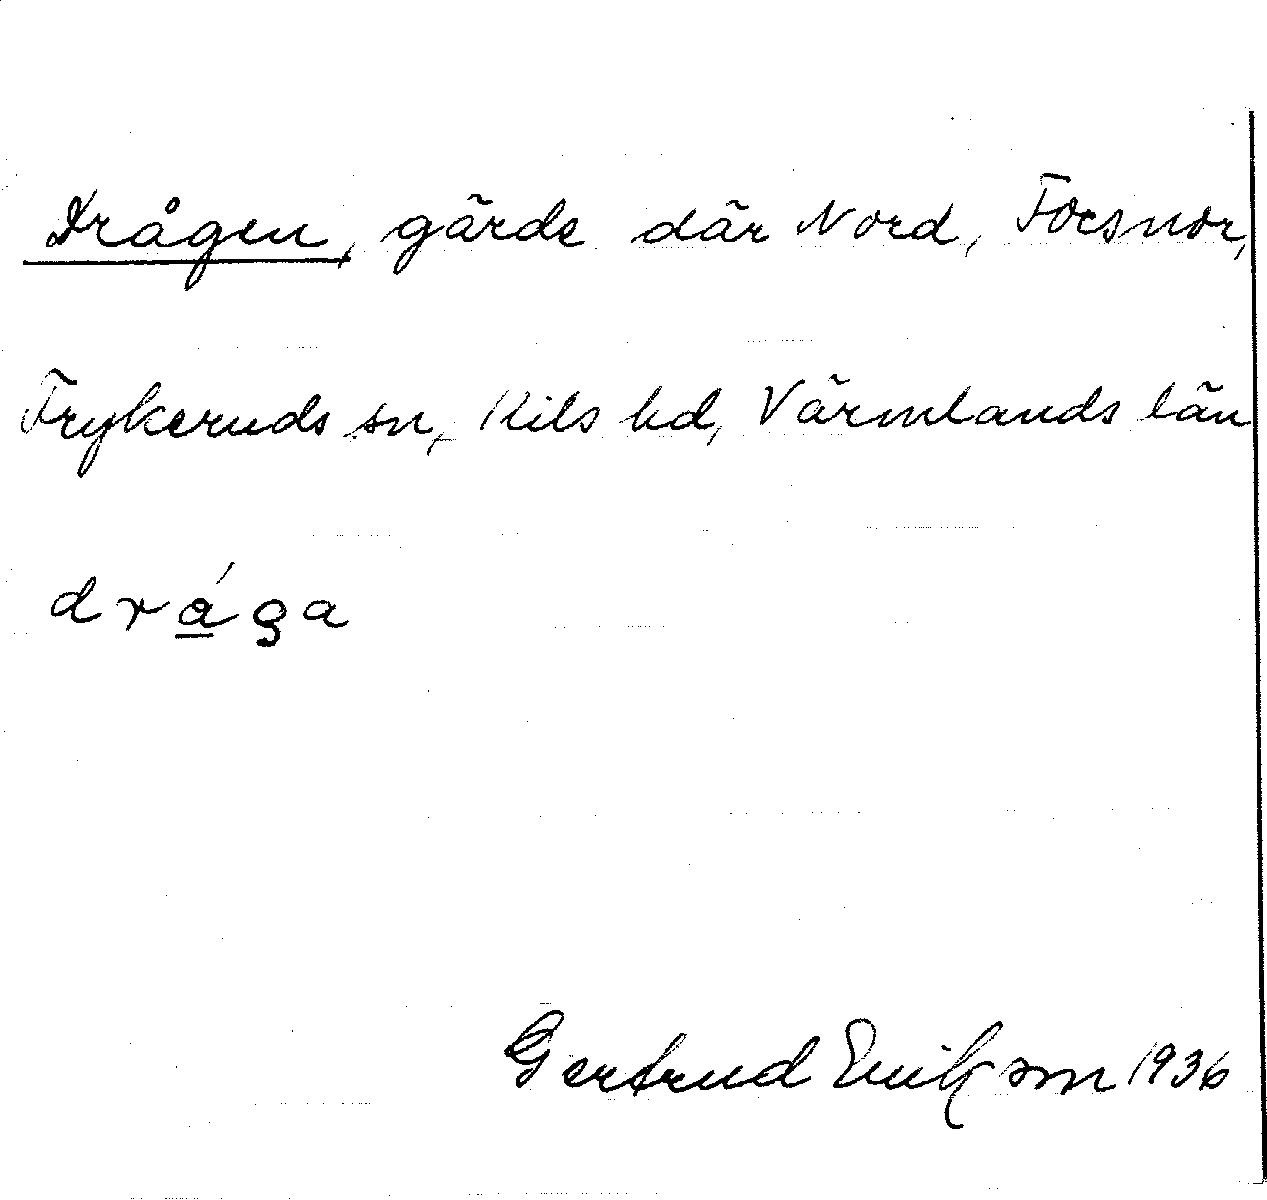 Drågen, gärde där Nord, Forsnor,
Frykeruds sn, Kils hd, Värmlands län
drága
Gertrud Erikson 1936